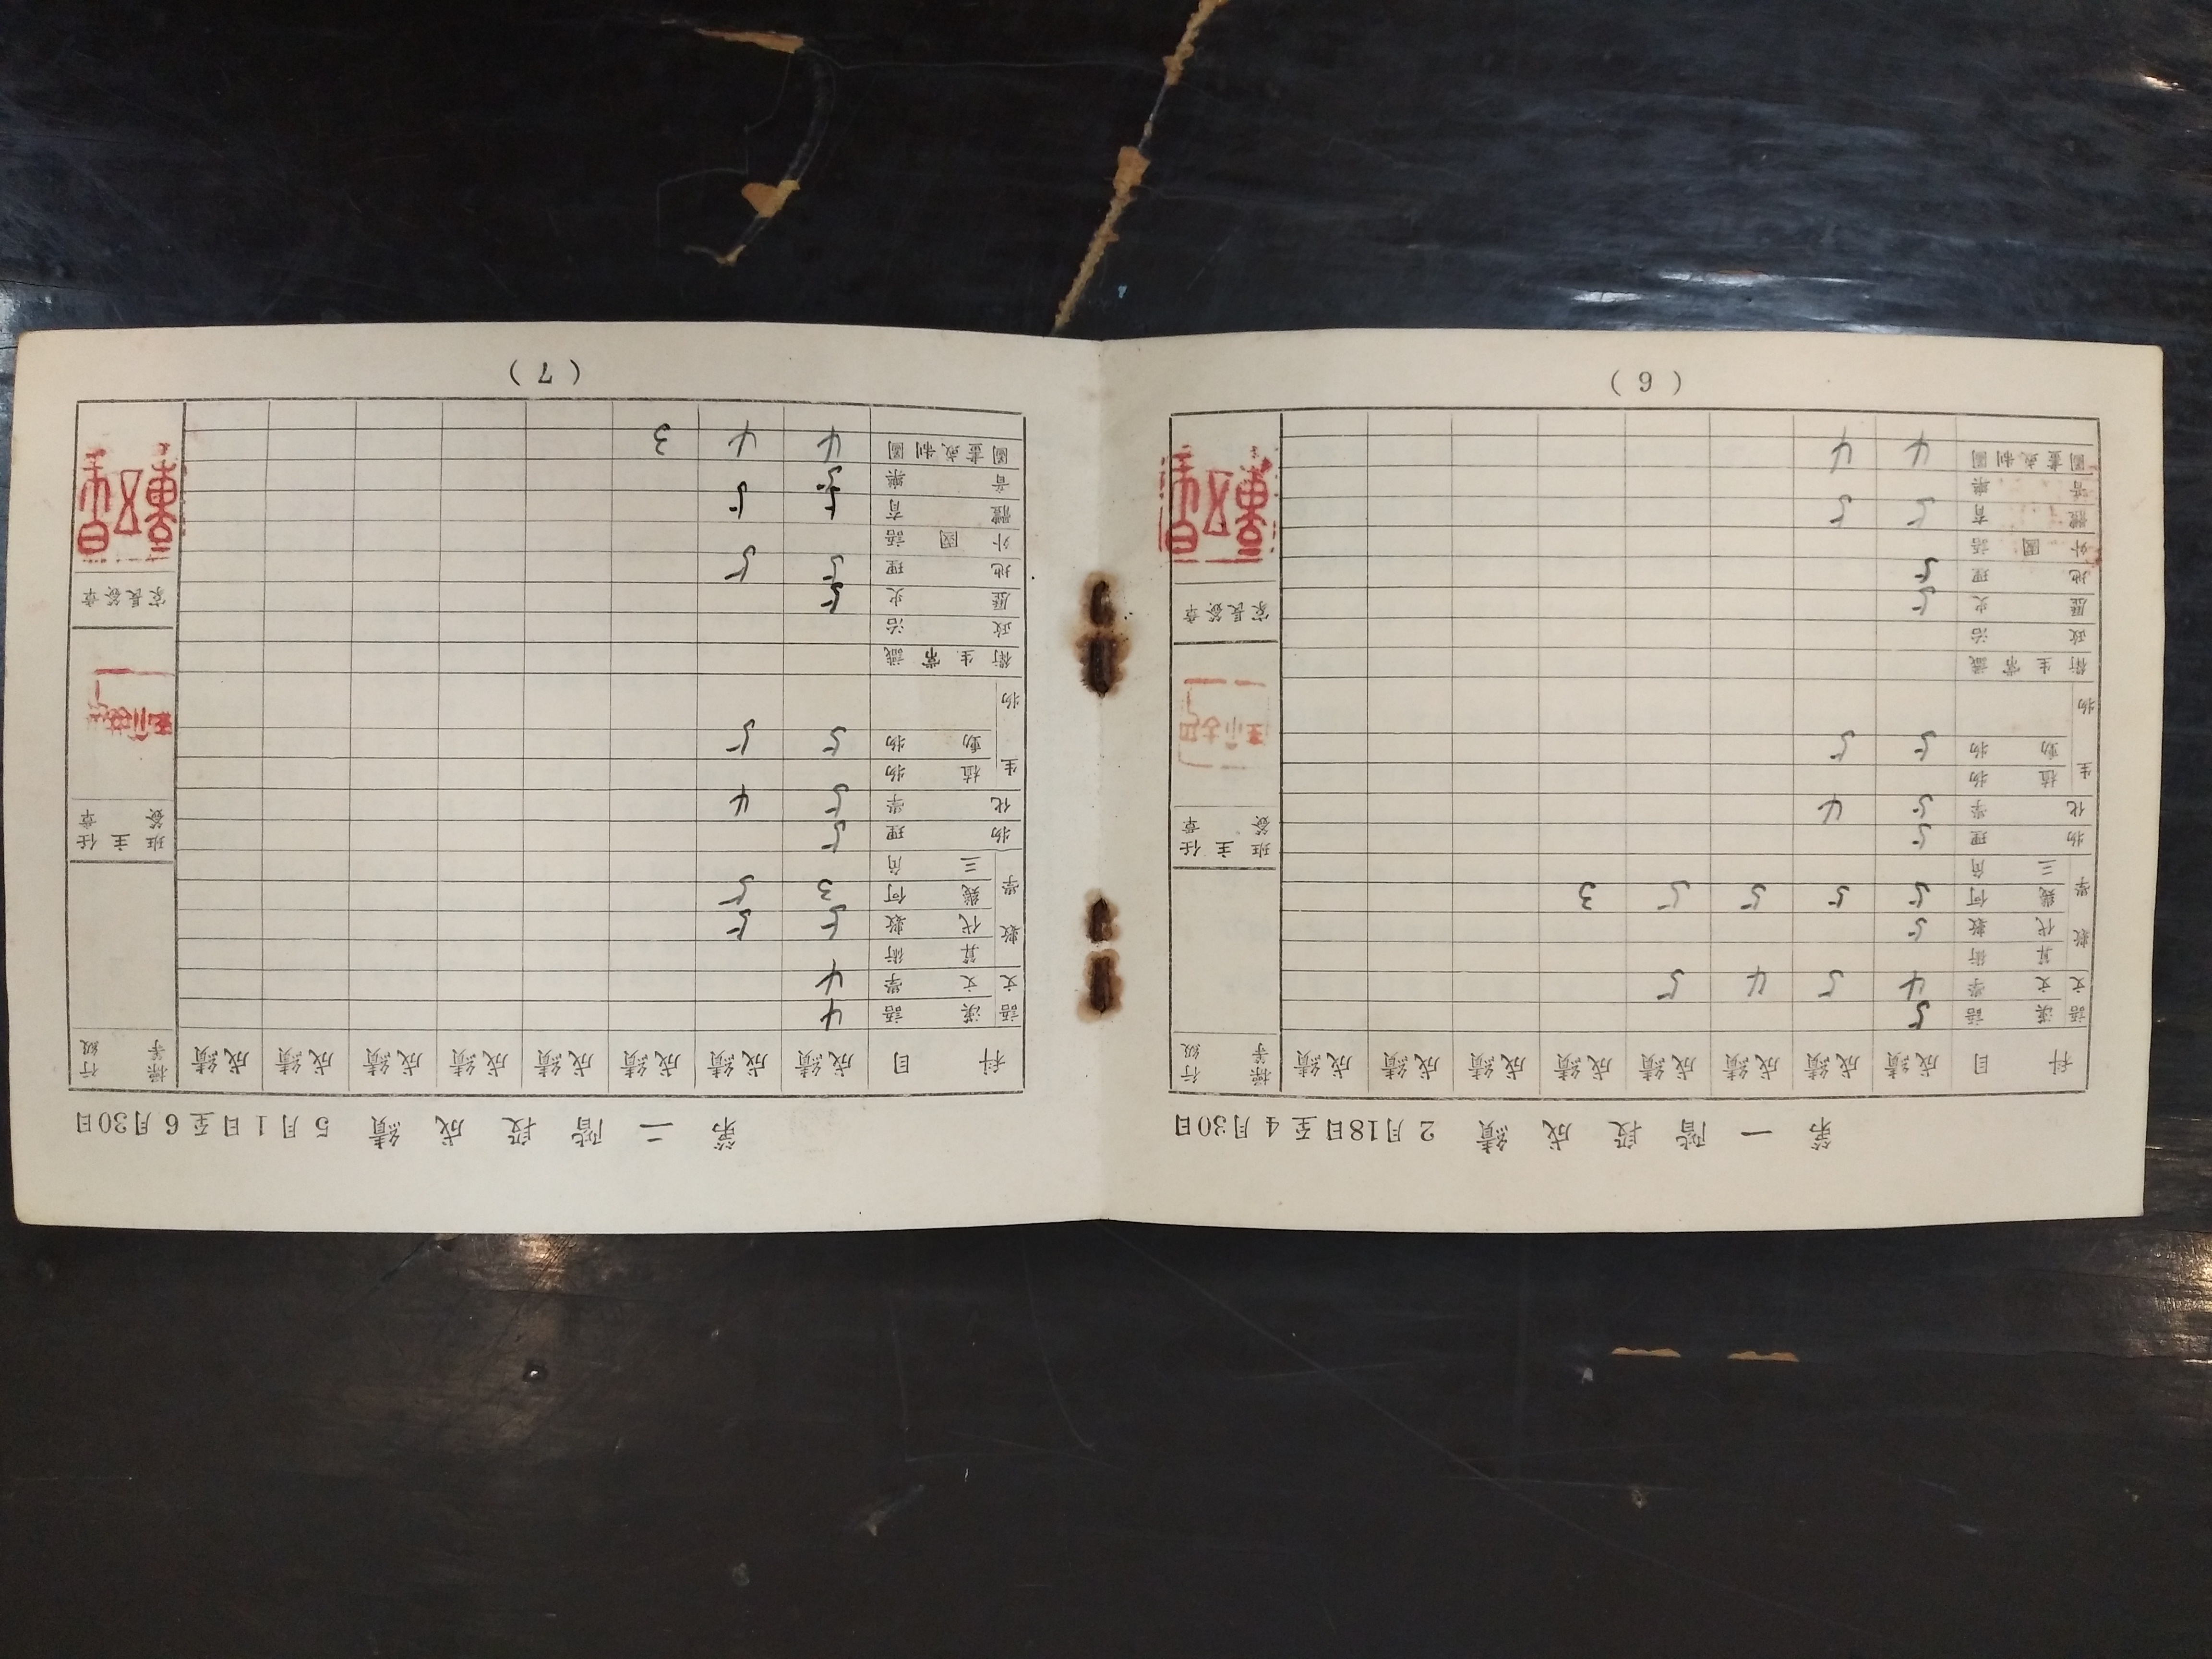 第一階段成績 2月18日至4月30日
科目 成績 成績 成績 成績 成績 成績 成績 成績 操行等級
語文 漢語 5
文學 4 5 4 5
數學 算術
代數 5
幾何 5 5 5 5 3
三角
物理 5
化學 5 4
生物 植物
動物 5 5
衛生常識
政治
歷史 5
地理 5
外國語
體育 5 5
音樂
圖畫或制圖 4 4
班主任簽章
家長簽章
(6)
第二階段成績 5月1日至6月30日
科目 成績 成績 成績 成績 成績 成績 成績 成績 操行等級
語文 漢語 4
文學 4
數學 算術
代數 5 5
幾何 3 5
三角
物理 5
化學 5 4
生物 植物
動物 5 5
衛生常識
政治
歷史 5
地理 5 5
外國語
體育 5 5
音樂 5
圖畫或制圖 4 4 3
班主任簽章
家長簽章
(7)